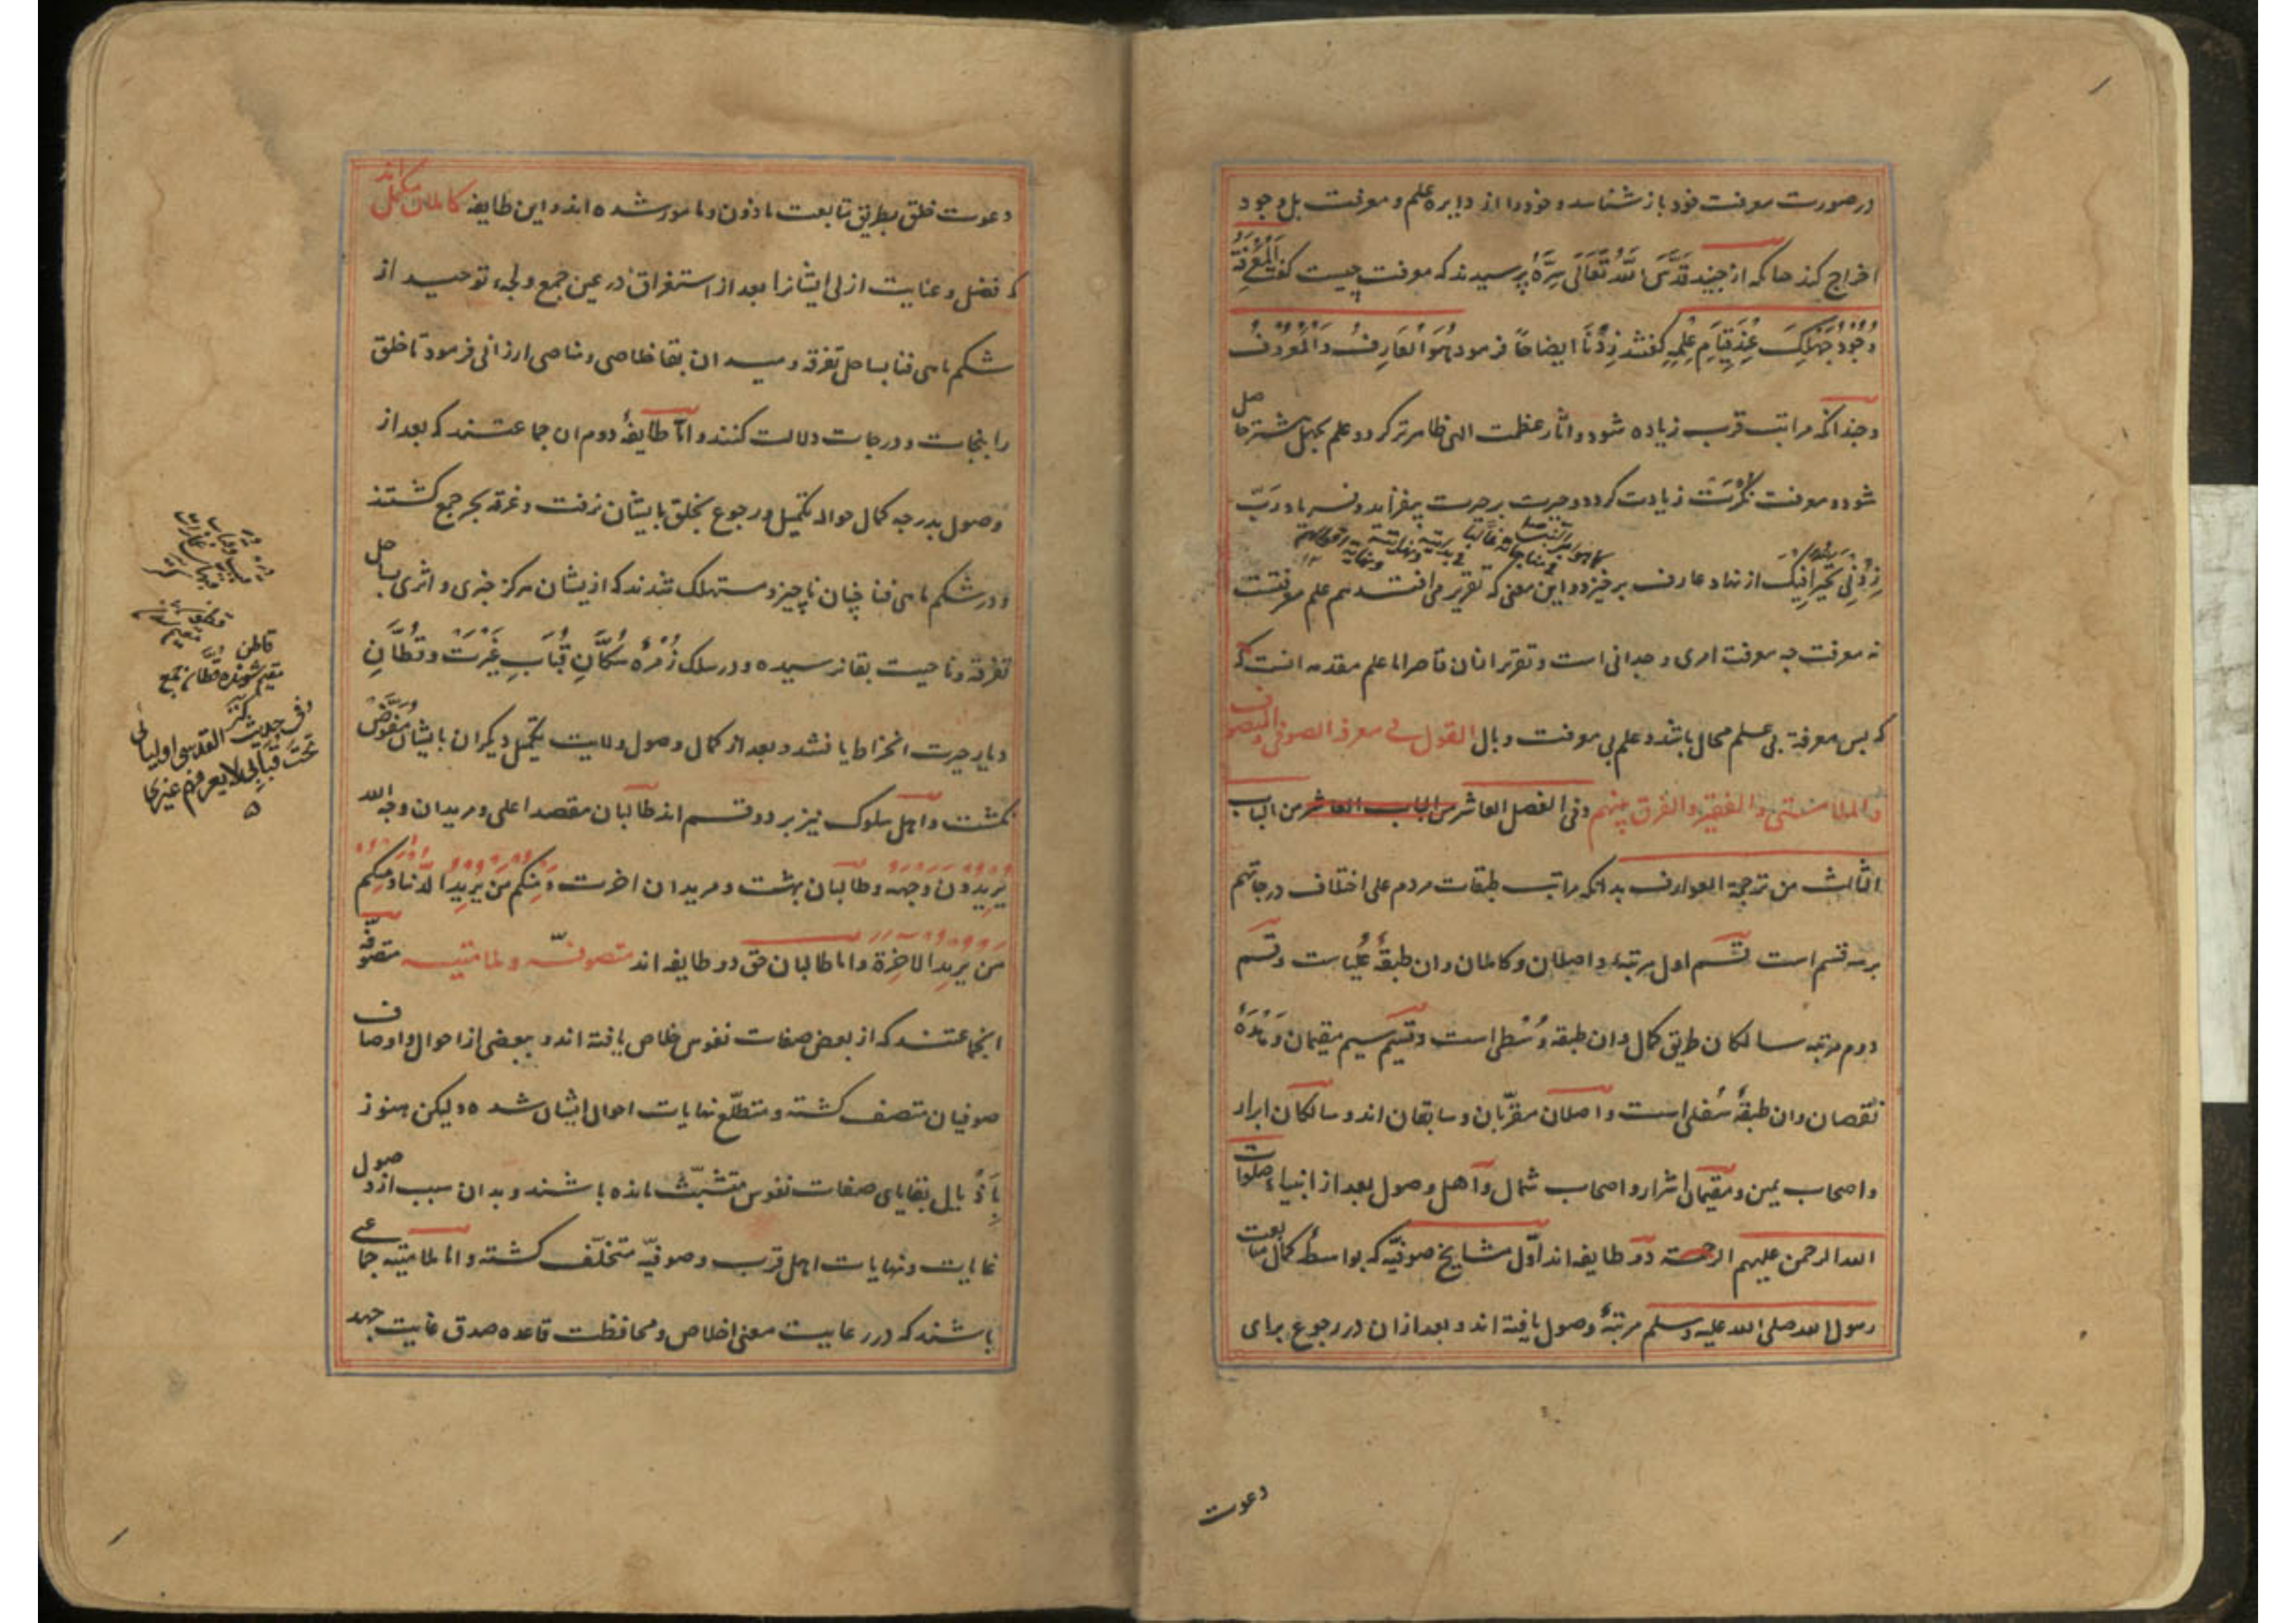 در صورت معرفت خود باز شناسد و خود را از دایره علم و معرفت بل وجود
اخراج کند چنانکه از جنید قَدَّسَ اللهُ تَعَالَی سِرَّهُ پرسیدند که معرفت چیست گفت اَلْمَعْرِفَةُ
وُجُوْدُ جَهْلِکَ عِنْدَ قِیَامِ عِلْمِهِ گفتند زِدْنَا ایضاحًا فرمود هُوَ الْعَارِفُ وَالْمَعْرُوْفُ
و چندانکه مراتب قرب زیاده شود و اثار عظمت الهی ظاهرتر کردد علم بجهل بیشتر حاصل
شود و معرفت نکرت زیادت کردد و حیرت بر حیرت بیفزاید و فریاد رَبِّ
زِدْنِی تَحَیُّرًا فِیْکَ از نهاد عارف برخیزد و این معنی که تقریر می افتد هم علم معرفتست
نه معرفت چه معرفت امری وجدانی است و تقریر ازان قاصر اما علم مقدمه انست که
که پس معرفة بی علم محال باشد و علم بی معرفت وبال القول فی معرفة الصوفی والمتصوف
والملامتی والفقیر والفرق بینهم وفی الفصل العاشر من الباب العاشر من الباب
الثالث من ترجمة العوارف بدانکه مراتب طبقات مردم علی اختلاف درجاتهم
بر سه قسم است قسم اول مرتبهٔ واصلان و کاملان و ان طبقهٔ عُلیاست و قسم
دوم مرتبه سالکان طریق کمال و ان طبقه وُسْطی است و قسم سیم مقیمان وَهْدَهٔ
نقصان و ان طبقهٔ سُفلی است و اصلان مقرّبان و سابقان اند و سالکان ابرار
و اصحاب یمین و مقیمان اشرار و اصحاب شمال و اهل وصول بعد از انبیاء صلوات
الله الرحمن علیهم الرحمة دو طایفه اند اوّل مشایخ صوفیّه که بواسطهٔ کمال متابعت
رسول الله صلی الله علیه وسلم مرتبهٔ وصول یافته اند و بعد ازان در رجوع برای
دعوت
دعوت خلق بطریق متابعت ماذون و مامور شده اند و این طایفه کاملان مکمل اند
که فضل و عنایت ازلی ایشانرا بعد از استغراق در عین جمع و لجهٔ توحید از
شکم ماهی فنا بساحل تفرقه و میدان بقا خلاصی و مناصی ارزانی فرمود تا خلق
را بنجات و درجات دلالت کنند و امّا طایفهٔ دوم ان جماعتند که بعد از
وصول بدرجه کمال حواله تکمیل و رجوع بخلق بایشان نرفت و غرقه بحر جمع کشتند
و در شکم ماهی فنا چنان ناچیز و مستهلک شدند که ازیشان هرکز خبری و اثری بساحل
تفرقه و ناحیت بقا نرسیده و در سلک زُمْرَهٔ سُکَّانِ قُبَابِ غَیْرَتْ وَ قُطَّانِ
دیار حیرت انخراط یافتند و بعد از کمال وصول ولایت تکمیل دیکران بایشان مُفَوَّضْ
نکشت و اهل سلوک نیز بر دو قسم اند طالبان مقصد اعلی و مریدان وجه الله
یُرِیْدُوْنَ وَجْهَهُ و طالبان بهشت و مریدان اخرت وَمِنْکُمْ مَنْ یُرِیْدُ الدُّنْیَا وَمِنْکُمْ
مَنْ یُرِیْدُ الْاٰخِرَةَ و اما طالبان حق دو طایفه اند متصوفّه و ملامتیه متصوّفه
انجماعتند که از بعض صفات نفوس خلاص یافته اند و ببعضی از احوال و اوصاف
صوفیان متصف کشته و متطلّع نهایات احوال ایشان شده ولیکن هنوز
بِاَذْیال بقایای صفات نفوس متشبّث مانده باشند و بدان سبب از وصول
غایات و نهایات اهل قرب و صوفیّه متخلّف کشته و اما ملامتیه جماعتی
باشند که در رعایت معنی اخلاص و محافظت قاعده صدق غایت جهد
قاطن
مقیم شونده قطان جمع
وفی حدیث القدسی اولیائی
تحت قبابی لا یعرفهم غیری